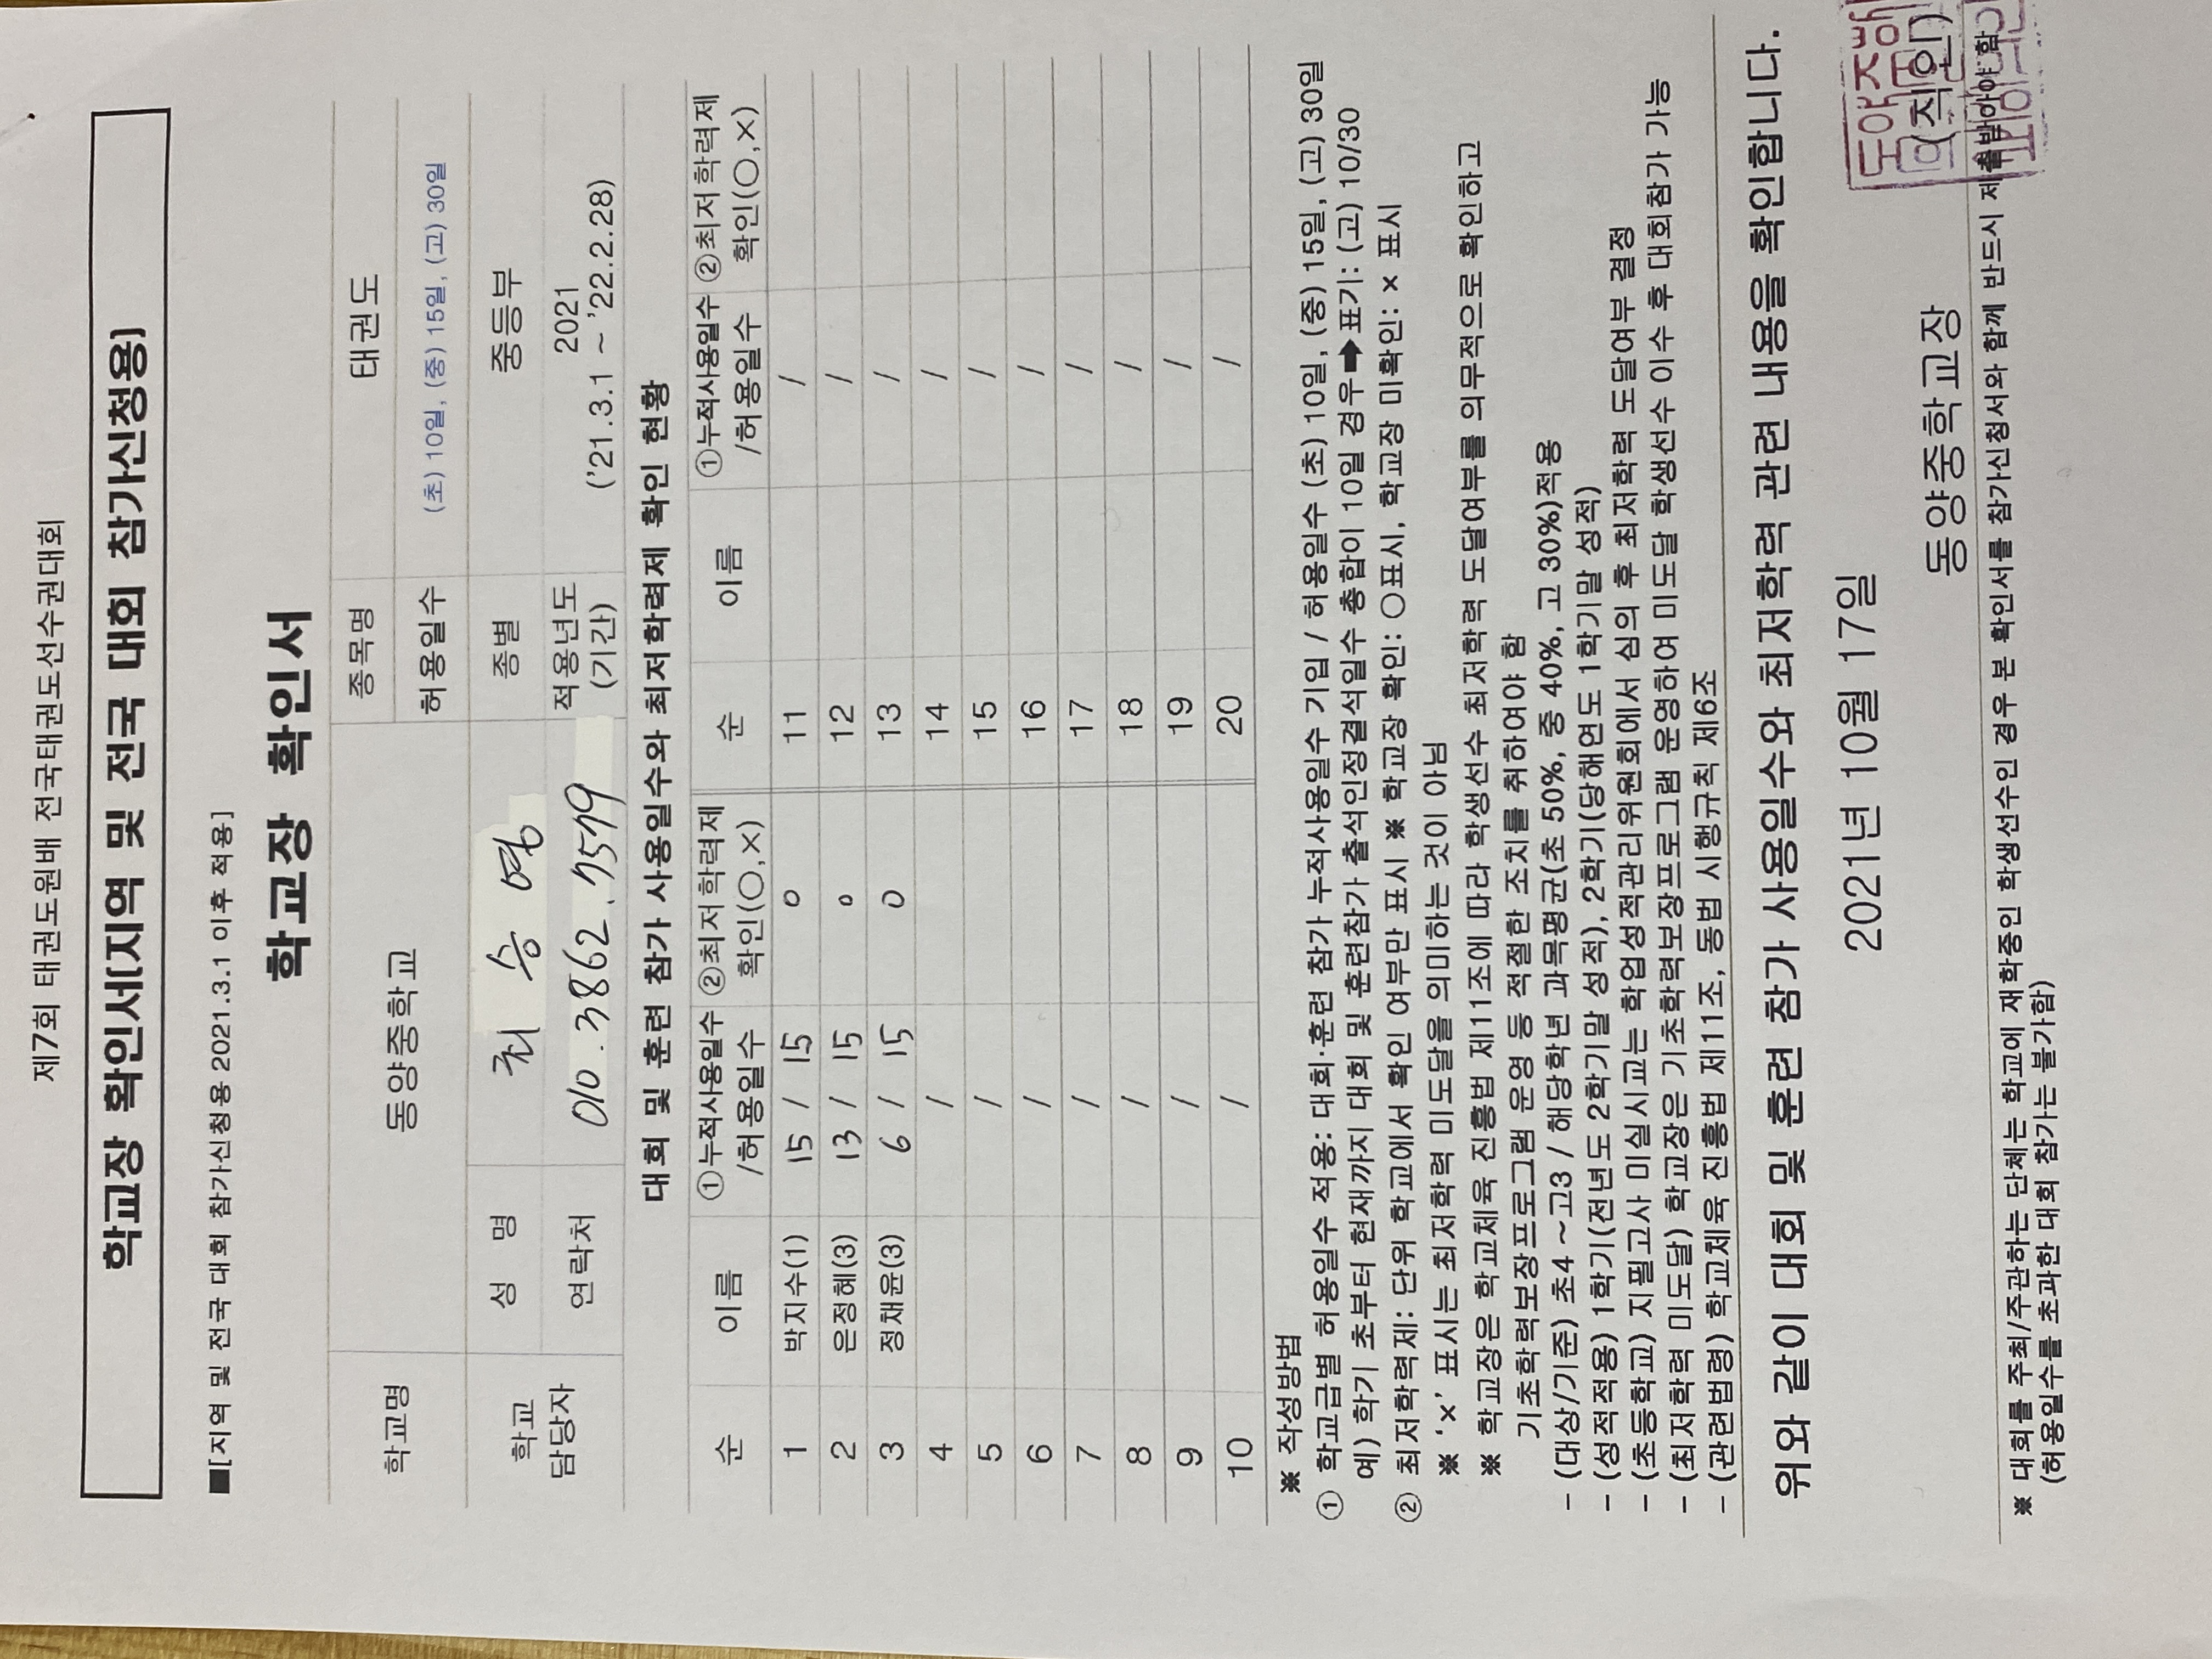 제7회 태권도원배 전국태권도선수권대회
학교장 확인서[지역 및 전국 대회 참가신청용]
■[지역 및 전국 대회 참가신청용 2021.3.1 이후 적용]
학교장 확인서
학교명 동양중학교 종목명 태권도
허용일수 (초) 10일, (중) 15일, (고) 30일
학교 담당자 성 명 최승영 종별 중등부
연락처 010.3862.7599 적용년도 (기간) 2021 ('21.3.1 ~ '22.2.28)
대회 및 훈련 참가 사용일수와 최저학력제 확인 현황
순 이름 ①누적사용일수 /허용일수 ②최저학력제 확인(○,×) 순 이름 ①누적사용일수 /허용일수 ②최저학력제 확인(○,×)
1 박지수(1) 15 / 15 ○ 11 /
2 은정혜(3) 13 / 15 ○ 12 /
3 정채윤(3) 6 / 15 ○ 13 /
4 / 14 /
5 / 15 /
6 / 16 /
7 / 17 /
8 / 18 /
9 / 19 /
10 / 20 /
※ 작성방법
① 학교급별 허용일수 적용: 대회·훈련 참가 누적사용일수 기입 / 허용일수 (초) 10일, (중) 15일, (고) 30일
예) 학기 초부터 현재까지 대회 및 훈련참가 출석인정결석일수 총합이 10일 경우➡표기: (고) 10/30
② 최저학력제: 단위 학교에서 확인 여부만 표시 ※ 학교장 확인: ○표시, 학교장 미확인: × 표시
※ '×' 표시는 최저학력 미도달을 의미하는 것이 아님
※ 학교장은 학교체육 진흥법 제11조에 따라 학생선수 최저학력 도달여부를 의무적으로 확인하고
기초학력보장프로그램 운영 등 적절한 조치를 취하여야 함
- (대상/기준) 초4 ~고3 / 해당학년 과목평균(초 50%, 중 40%, 고 30%)적용
- (성적적용) 1학기(전년도 2학기말 성적), 2학기(당해연도 1학기말 성적)
- (초등학교) 지필고사 미실시교는 학업성적관리위원회에서 심의 후 최저학력 도달여부 결정
- (최저학력 미도달) 학교장은 기초학력보장프로그램 운영하여 미도달 학생선수 이수 후 대회참가 가능
- (관련법령) 학교체육 진흥법 제11조, 동법 시행규칙 제6조
위와 같이 대회 및 훈련 참가 사용일수와 최저학력 관련 내용을 확인합니다.
2021년 10월 17일
동양중학교장 (직인)
※ 대회를 주최/주관하는 단체는 학교에 재학중인 학생선수인 경우 본 확인서를 참가신청서와 함께 반드시 제출받아야 함
(허용일수를 초과한 대회 참가는 불가함)